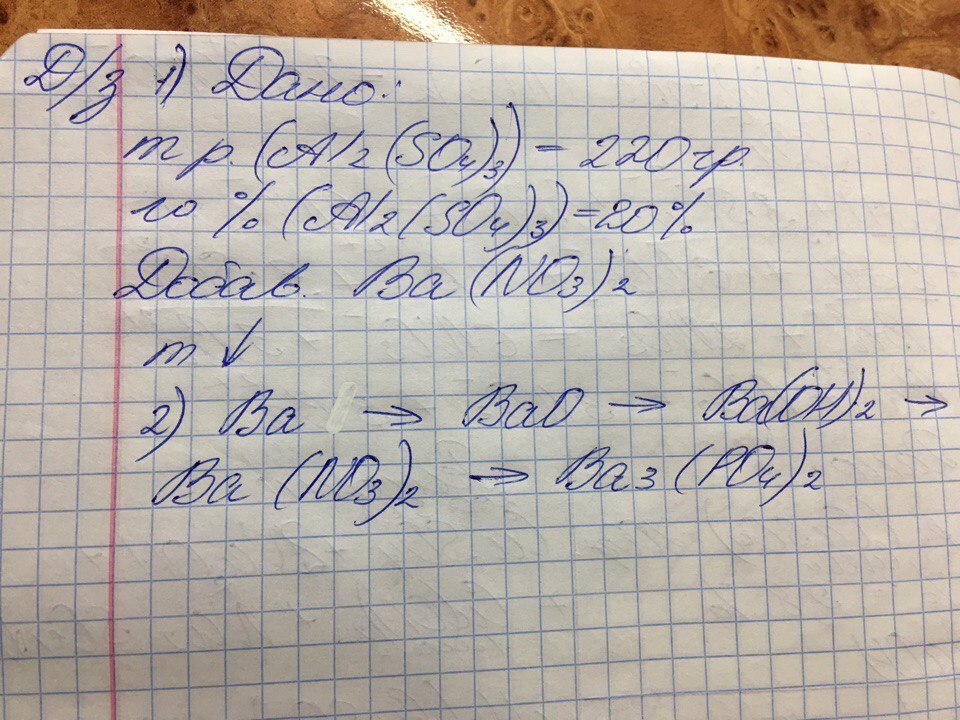 Д/з 1) Дано:
m р. (Al2(SO4)3) = 220 гр.
ω % (Al2(SO4)3) = 20%
Добав. Ba(NO3)2
m ↓
2) Ba → BaO → Ba(OH)2 →
Ba(NO3)2 → Ba3(PO4)2